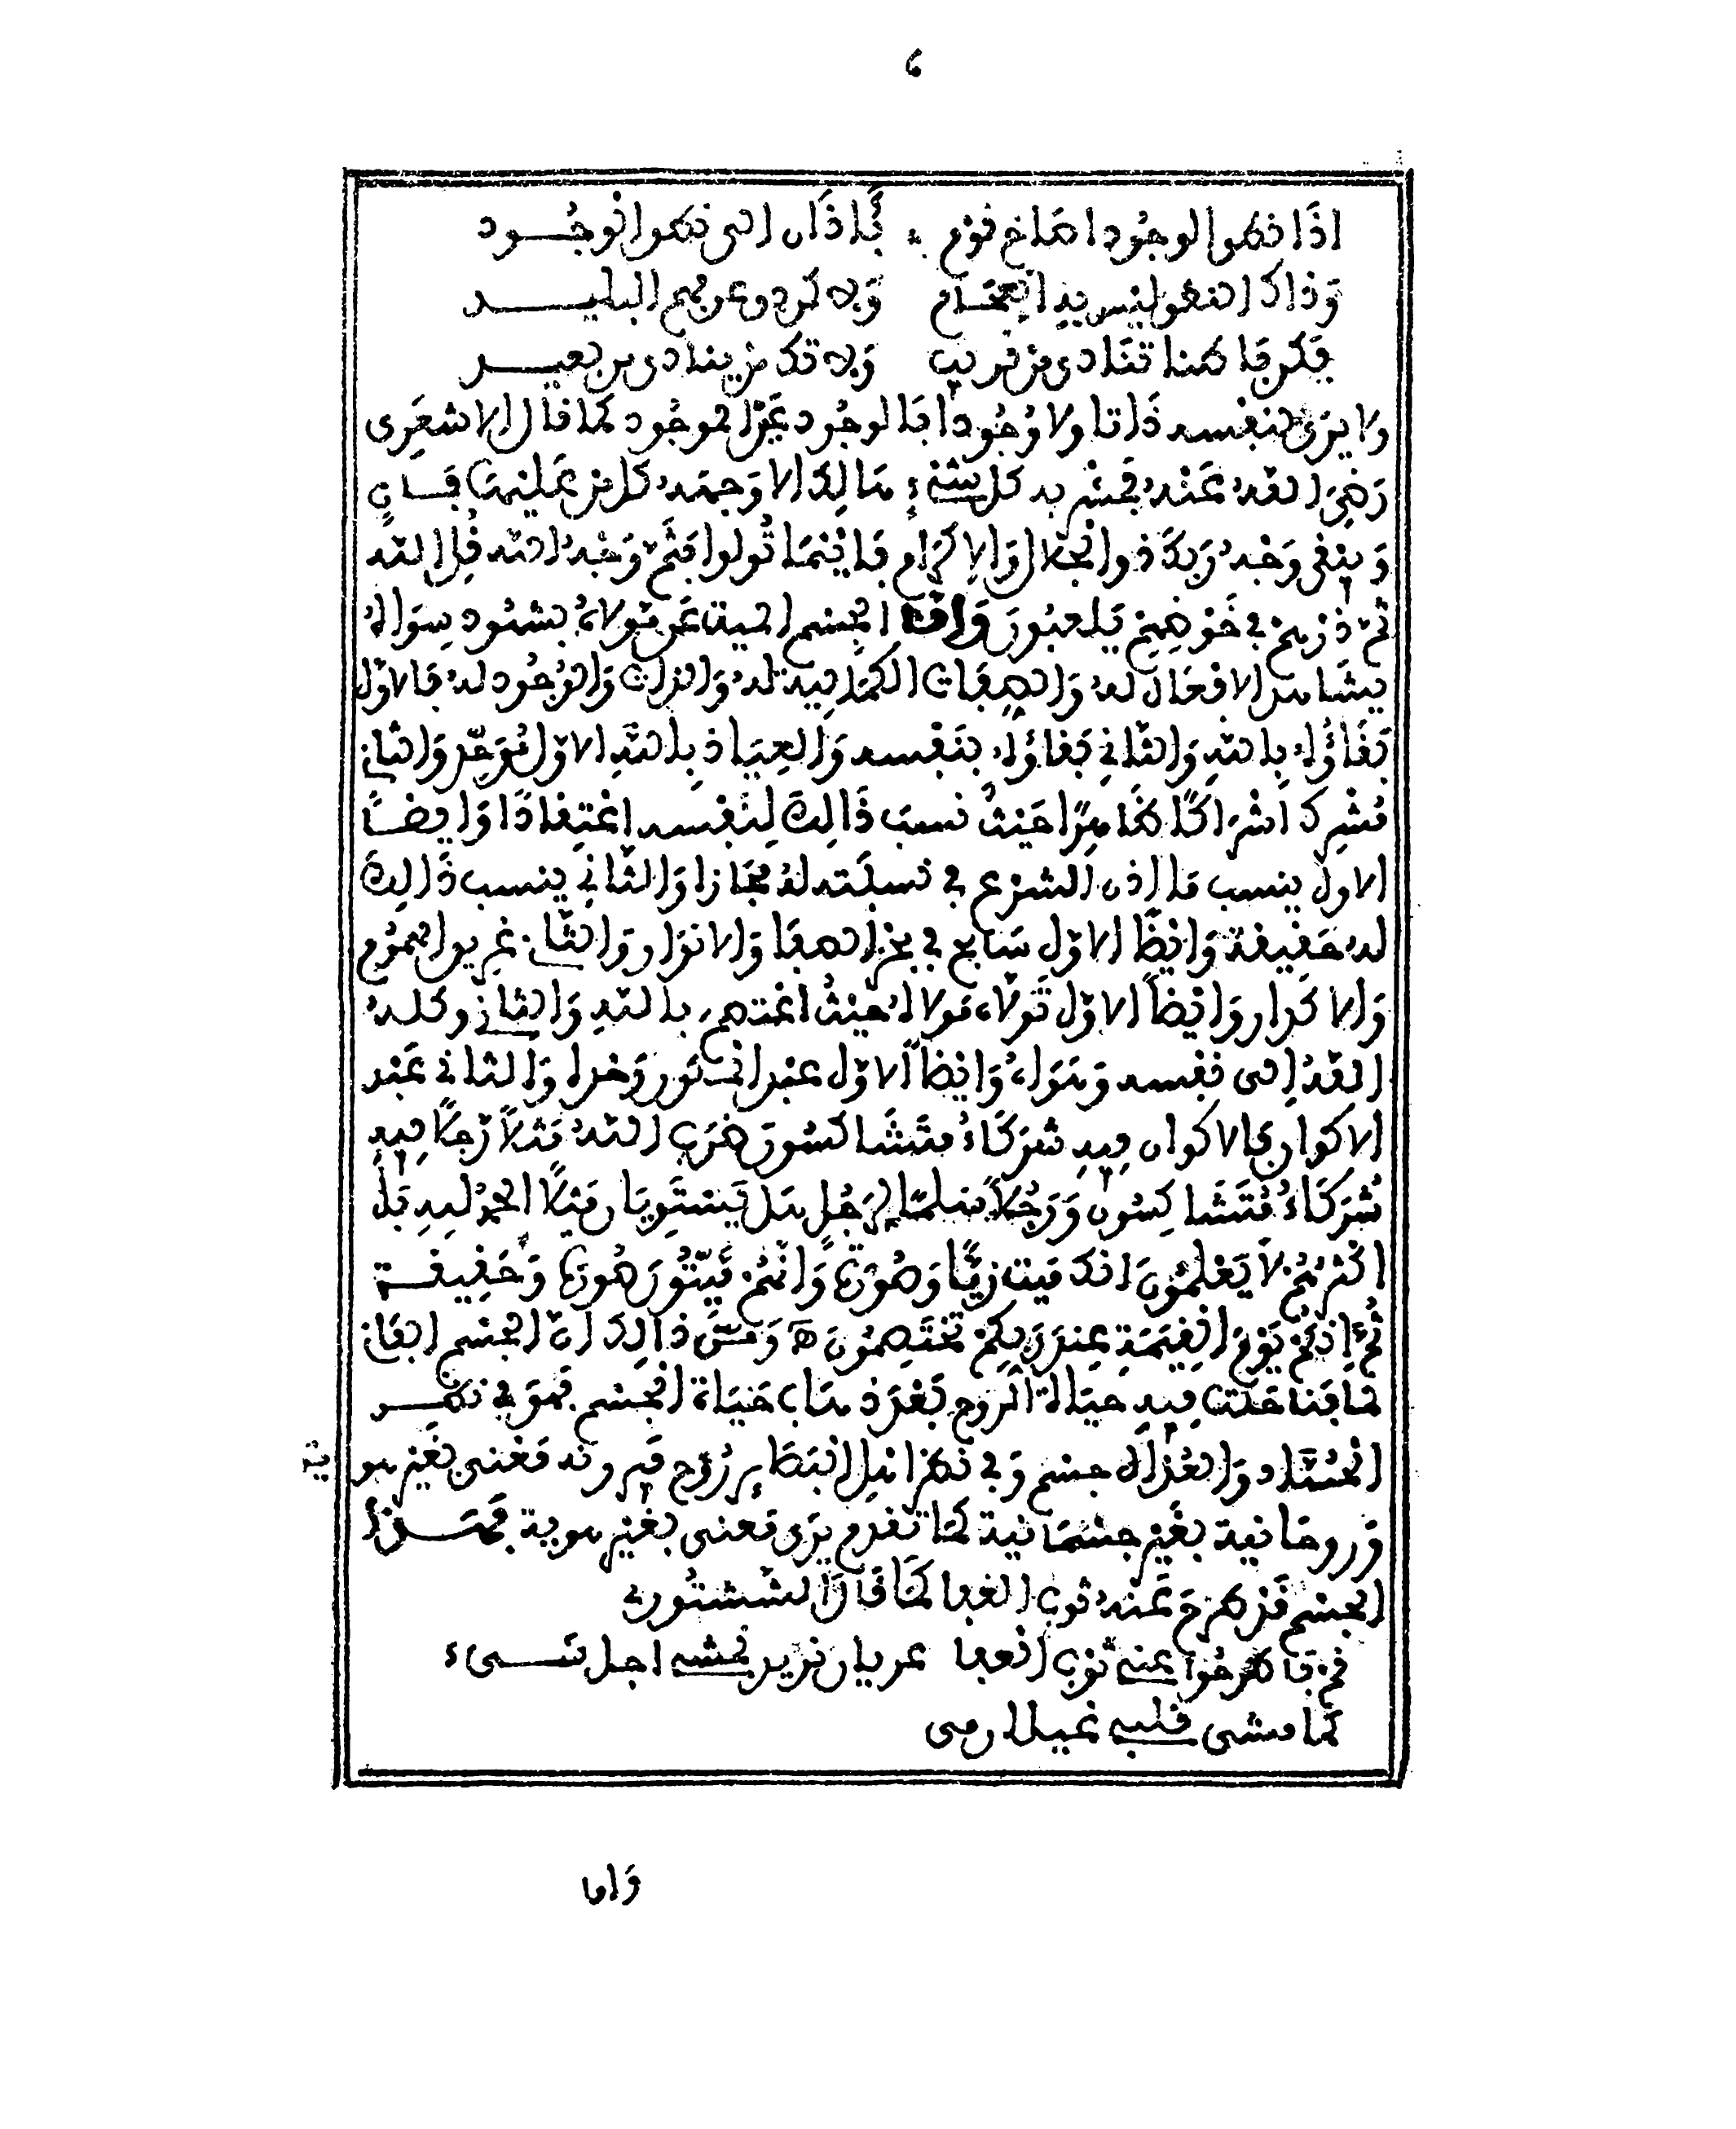 ٦
اذَا نطق الوجُود اصَاخ قوْم ؞ بِئَاذَان الى نطق الوجُود
وَذاك النطق ليس به انعجَام وَلاكن دق عن فهم البليد
فكن فطنا تنَادى من قريب وَلا تك من ينادى من بعيد
ولا يرَى لنفسه ذَاتا ولا وُجُودا فالوجُود عيْن الموجُود كما قال الاشعَرِى
رَضِىَ اللهُ عَنْهُ فمشْربه كل شىْءٍ هَالِك الا وَجهَهُ كل من عَليْهَا فَانٍ
وَيبْقى وَجْهُ رَبكَ ذو الجَلال وَالاِكرَام فَايْنمَا تُولوا فثَمّ وَجْهُ الله قُل الله
ثمّ ذرْهمْ فى خَوْضِهِمْ يَلعبُونَ وَامَّا الجِسْم الميت عَن مَوْلاهُ بشهُود سِوَاهُ
يشَاهد الافعَال لهُ وَالصفَات الكمَاليه لهُ وَالذات وَالوُجُود له فالاوّل
بَقَاؤُهُ باللهِ وَالثانى بَقاؤُهُ بنَفْسه وَالعِيَاذ بِاللهِ الاوّل مُوَحّد وَالثانى
مُشْرِك اشْرَاكًا ظَاهرًا حَيْثُ نسبَ ذَالِكَ لِنَفْسه اعْتِقادًا وَايضًا
الاول ينسب ما اذن الشرْع فى نسبَته لهُ مجَازا وَالثانى ينسب ذَالِكَ
لهُ حَقيقة وَايْضًا الاوّل سَابح فى بحْر الصفَا وَالانوَار وَالثانى غريق الهمُوم
وَالاكدار وَايْضًا الاوّل تَولاهُ مَولاهُ حَيْثُ اعْتصم باللهِ وَالثانى وكلهُ
اللهُ الى نفْسه وَهَوَاهُ وَايْضًا الاوّل عبْد المكَون وَحْدهُ وَالثانى عَبْد
الاكوان فالاكوان فيهِ شرَكَاءُ متَشَاكسُونَ ضرَبَ اللهُ مَثلاً رّجلاً فيهِ
شُرَكَاءُ مُتَشَاكِسُونَ وَرَجُلاً سَلمًا لِّرَجُلٍ هَل يَسْتَوِيَان مَثَلاً الحمْدُ لِلهِ بَلْ
اكْثرُهُمْ لاَ يَعْلمُونَ انكَ مَيت زيًّا وَصُوْرَةً وَانّهُمْ مَّيّتُونَ صُورَةً وَحَقِيقة
ثُمَّ إِنكُمْ يَوْمَ القِيَمَةِ عِندَ رَبِكُمْ تَخْتَصِمُونَ ه وَمعْنَى ذالِك انّ الجسْم الفَانى
لمّا فنا حَلت فيهِ حيَاة الروح بَعْدَ ذهَاب حَيَاة الجْسم فهوَ فى نظر
الحُسّاد وَالعُذال جسْم وَفى نظر اهل البصَائر رُوح فيرونه مَعْنى بغَيْر هو يّة
وَروحَانية بغَيْر جسْمَانية كمَا تقدم يرَى مَعنى بغَيْر هوية فهَذا
الجسْم قد طرح عَنْهُ ثوب الغبا كمَا قَالَ الششتُرى
فمَن طرحُوا عنه ثوب الغبا عريان نريد نمشه اجل شىء
كما مشى قلبه غيلان مى
وَاما